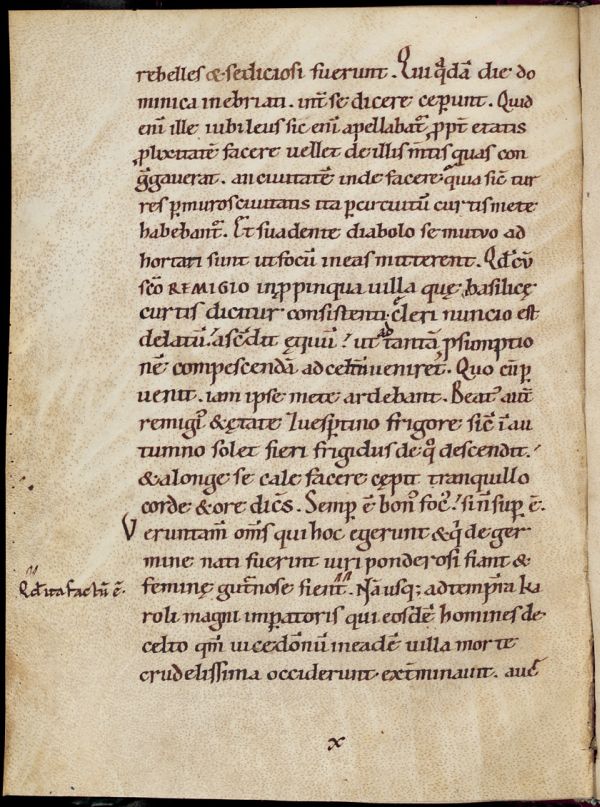 rebelles & sediciosi fuerunt. Qui qdā die do
minica inebriati. int se dicere ceperunt. Quid
eni ille iubileus sic eni apellabat᷑ ꝓpt etatis
ꝓlixitatē facere uellet de illis mtis quas con
ggauerat. an ciuitatē inde facere quia sic̄ tur
res p muros ciuitatis ita p circuitū curtis mete
habebant᷑. Et suadente diabolo se mutuo ad
hortati sunt ut focū in eas mitterent. Qd cū
sc̄o REMIGIO in ꝓpinqua uilla quę basilicę
curtis dicitur consistenti cęleri nuncio est
delatū. ascdit ęquū. ut ad tantā psumptio
nē compescendā ad ueniret. Quo cūp
uenit. iam ipse mete ardebant. Beat᷒ aut̄
remigi᷒ & ętate & uesptino frigore sic̄ i au
tumno solet fieri frigidus de qo descendit.
& a longe se cale facere cępit tranquillo
corde & ore dic̄s. Semp ē bon᷒ foc᷒. si n̄ sup ē.
Veruntam̄ om̄s qui hoc egerunt & q de ger
mine nati fuerint uiri ponderosi fiant &
feminę gut̄nose fient. Nā usq; ad tempra ka
Qd ita factū ē.
roli magni impatoris qui eosdē homines de
celto qm̄ uicedōnū in eadē uilla morte
crudelissima occiderunt. ext̄minauit. auc̄
x